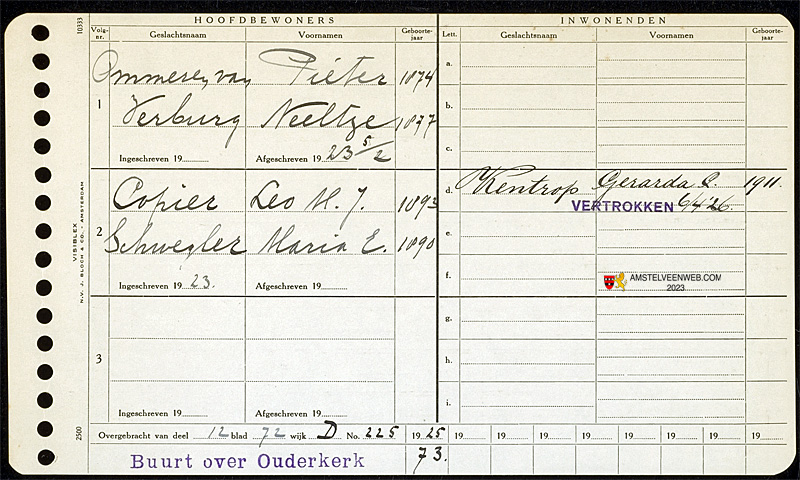 HOOFDBEWONERS INWONENDEN
Volg-nr. Geslachtsnaam Voornamen Geboorte-jaar Lett. Geslachtsnaam Voornamen Geboorte-jaar
10333
1 Ommeren, van Pieter 1874 a.
Verburg Neeltze 1877 b.
c.
Ingeschreven 19 Afgeschreven 19 23 5/2
2 Copier Leo M. J. 1893 d. Kentrop Gerarda C. 1911.
VERTROKKEN 6/4'26.
Schwegler Maria E. 1890 e.
Ingeschreven 19 23. Afgeschreven 19 f.
AMSTELVEENWEB.COM
2023
3 g.
h.
Ingeschreven 19 Afgeschreven 19 i.
VISIBLEX
N.V. J. BLOCH & CO. - AMSTERDAM
2500
Overgebracht van deel 12 blad 72 wijk D No. 225 19 25 19 19 19 19 19 19 19 19
Buurt over Ouderkerk 73.